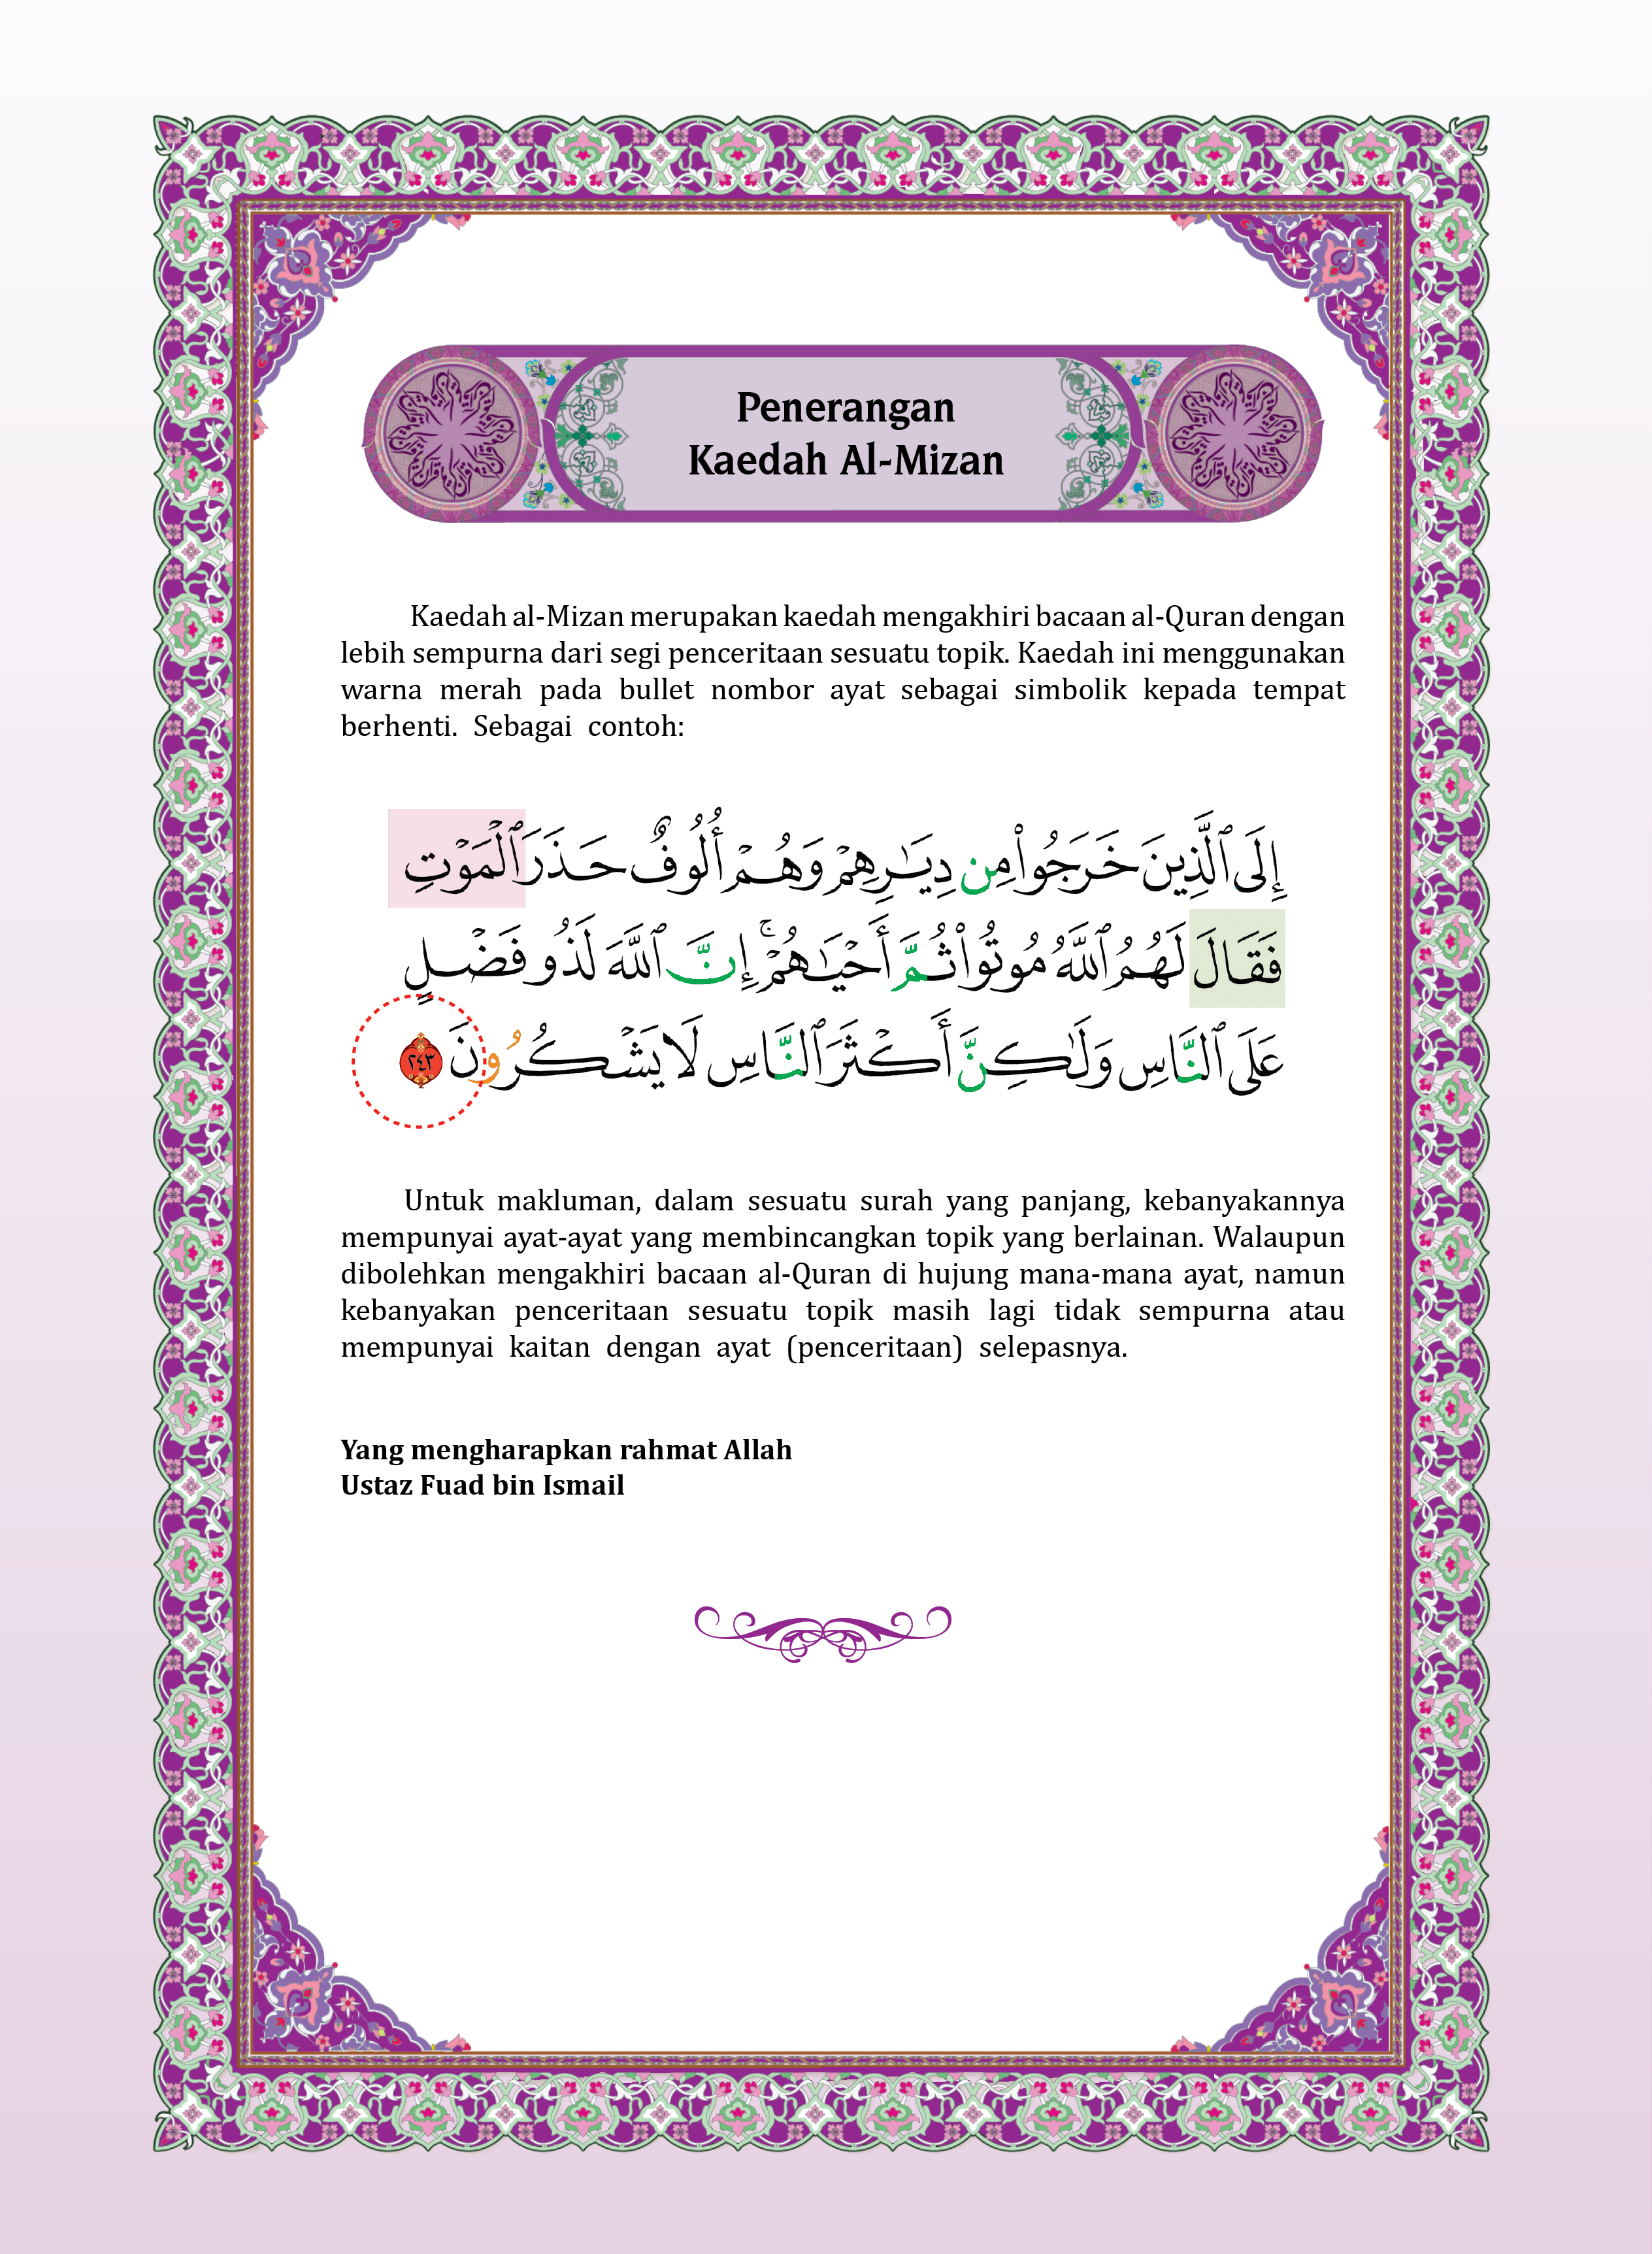 Penerangan
Kaedah Al-Mizan
Kaedah al-Mizan merupakan kaedah mengakhiri bacaan al-Quran dengan
lebih sempurna dari segi penceritaan sesuatu topik. Kaedah ini menggunakan
warna merah pada bullet nombor ayat sebagai simbolik kepada tempat
berhenti. Sebagai contoh:
إِلَى ٱلَّذِينَ خَرَجُوا۟ مِن دِيَـٰرِهِمْ وَهُمْ أُلُوفٌ حَذَرَ ٱلْمَوْتِ
فَقَالَ لَهُمُ ٱللَّهُ مُوتُوا۟ ثُمَّ أَحْيَـٰهُمْ ۚ إِنَّ ٱللَّهَ لَذُو فَضْلٍ
عَلَى ٱلنَّاسِ وَلَـٰكِنَّ أَكْثَرَ ٱلنَّاسِ لَا يَشْكُرُونَ ٢٤٣
Untuk makluman, dalam sesuatu surah yang panjang, kebanyakannya
mempunyai ayat-ayat yang membincangkan topik yang berlainan. Walaupun
dibolehkan mengakhiri bacaan al-Quran di hujung mana-mana ayat, namun
kebanyakan penceritaan sesuatu topik masih lagi tidak sempurna atau
mempunyai kaitan dengan ayat (penceritaan) selepasnya.
Yang mengharapkan rahmat Allah
Ustaz Fuad bin Ismail